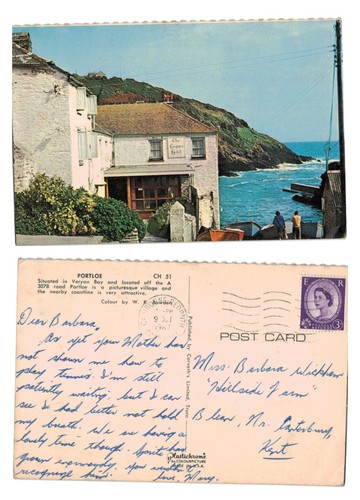 The
Lugger
Hotel
PORTLOE CH 51
Situated in Veryan Bay and located off the A
3078 road Portloe is a picturesque village and
the nearby coastline is very attractive.
Colour by W. R.
E R
POST CARD
Dear Barbara,
As yet your Mother has
not shown me how to
play tennis. I'm still
patiently waiting, but I can
see I had better not hold
my breath. We are having a
lovely time though. Spirit has
grown enormously, you wouldn't
recognise him. Love, Mary.
Published by Cornish Limited, Truro
Plastichrome
by COLOURPICTURE
Miss. Barbara Wickham
"Hillside View"
Blean, Nr. Canterbury,
Kent.